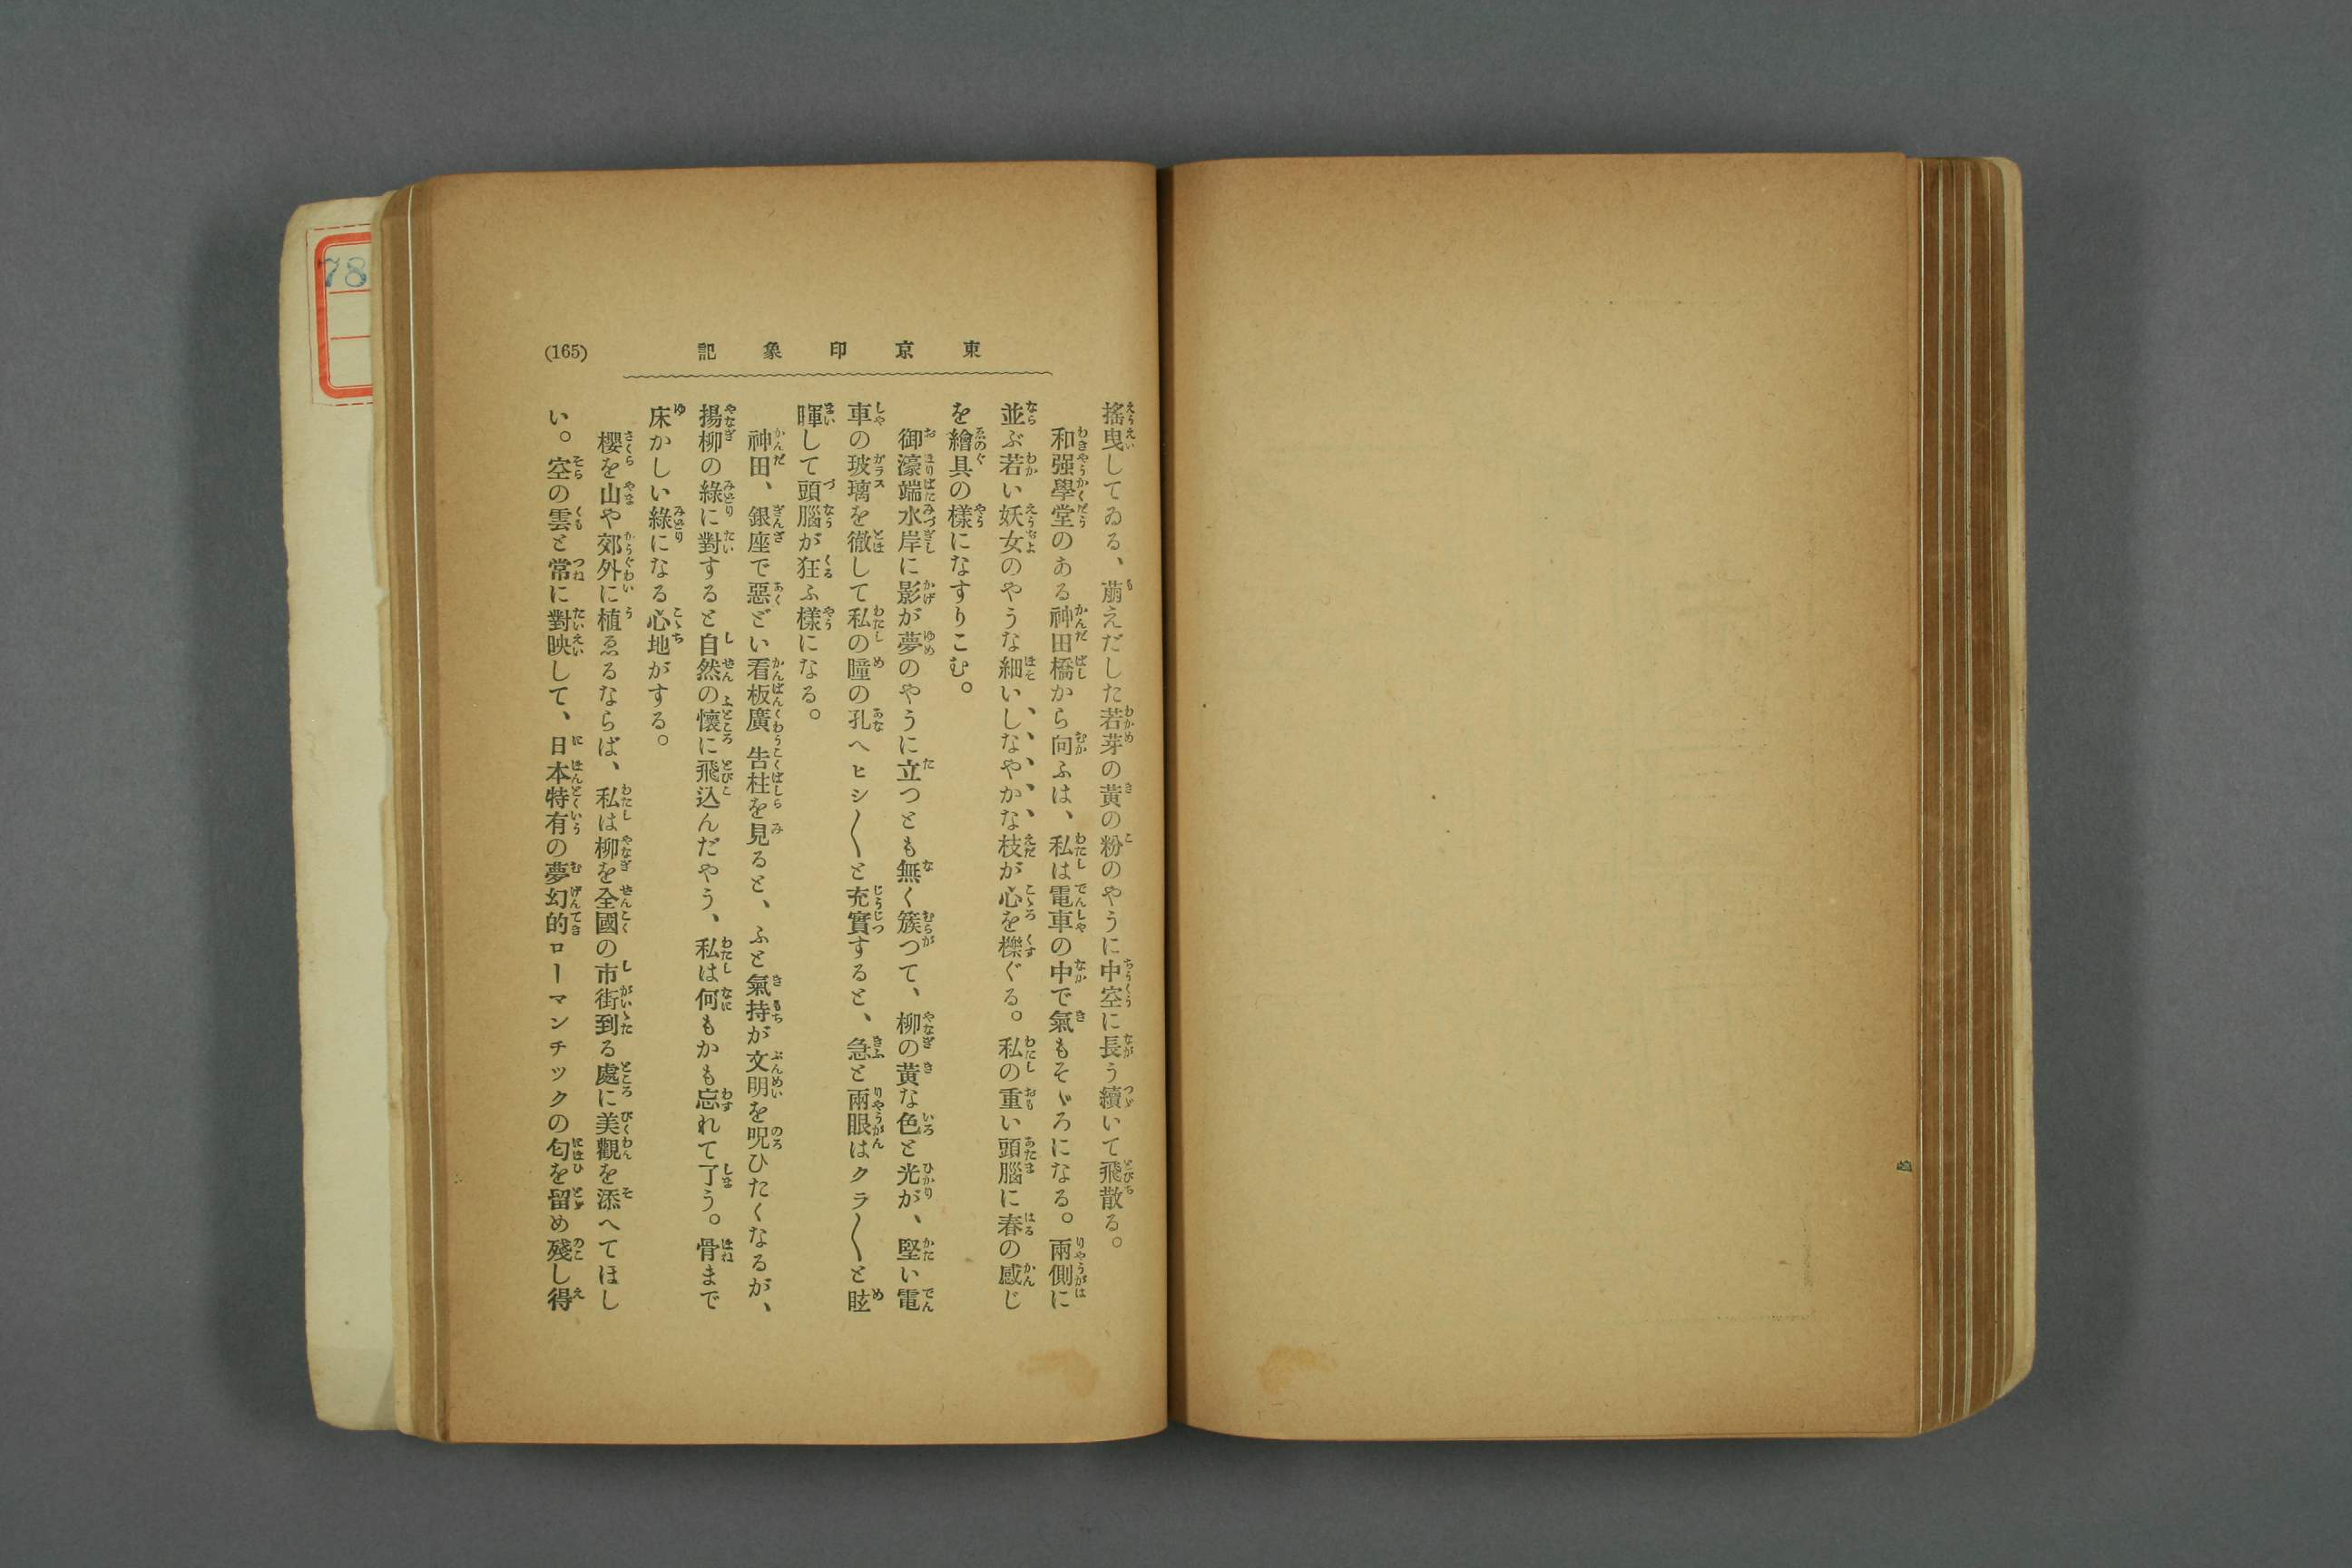 東京印象記
(165)
搖曳してゐる、萠えだした若芽の黃の粉のやうに中空に長う續いて飛散る。
和强學堂のある神田橋から向ふは、私は電車の中で氣もそゞろになる。兩側に
並ぶ若い妖女のやうな細いしなやかな枝が心を擽ぐる。私の重い頭腦に春の感じ
を繪具の樣になすりこむ。
御濠端水岸に影が夢のやうに立つとも無く簇つて、柳の黃な色と光が、堅い電
車の玻璃を徹して私の瞳の孔へヒシ〱と充實すると、急と兩眼はクラ〱と眩
暉して頭腦が狂ふ樣になる。
神田、銀座で惡どい看板廣告柱を見ると、ふと氣持が文明を呪ひたくなるが、
揚柳の綠に對すると自然の懷に飛込んだやう、私は何もかも忘れて了う。骨まで
床かしい綠になる心地がする。
櫻を山や郊外に植ゑるならば、私は柳を全國の市街到る處に美觀を添へてほし
い。空の雲と常に對映して、日本特有の夢幻的ローマンチックの匂を留め殘し得
78